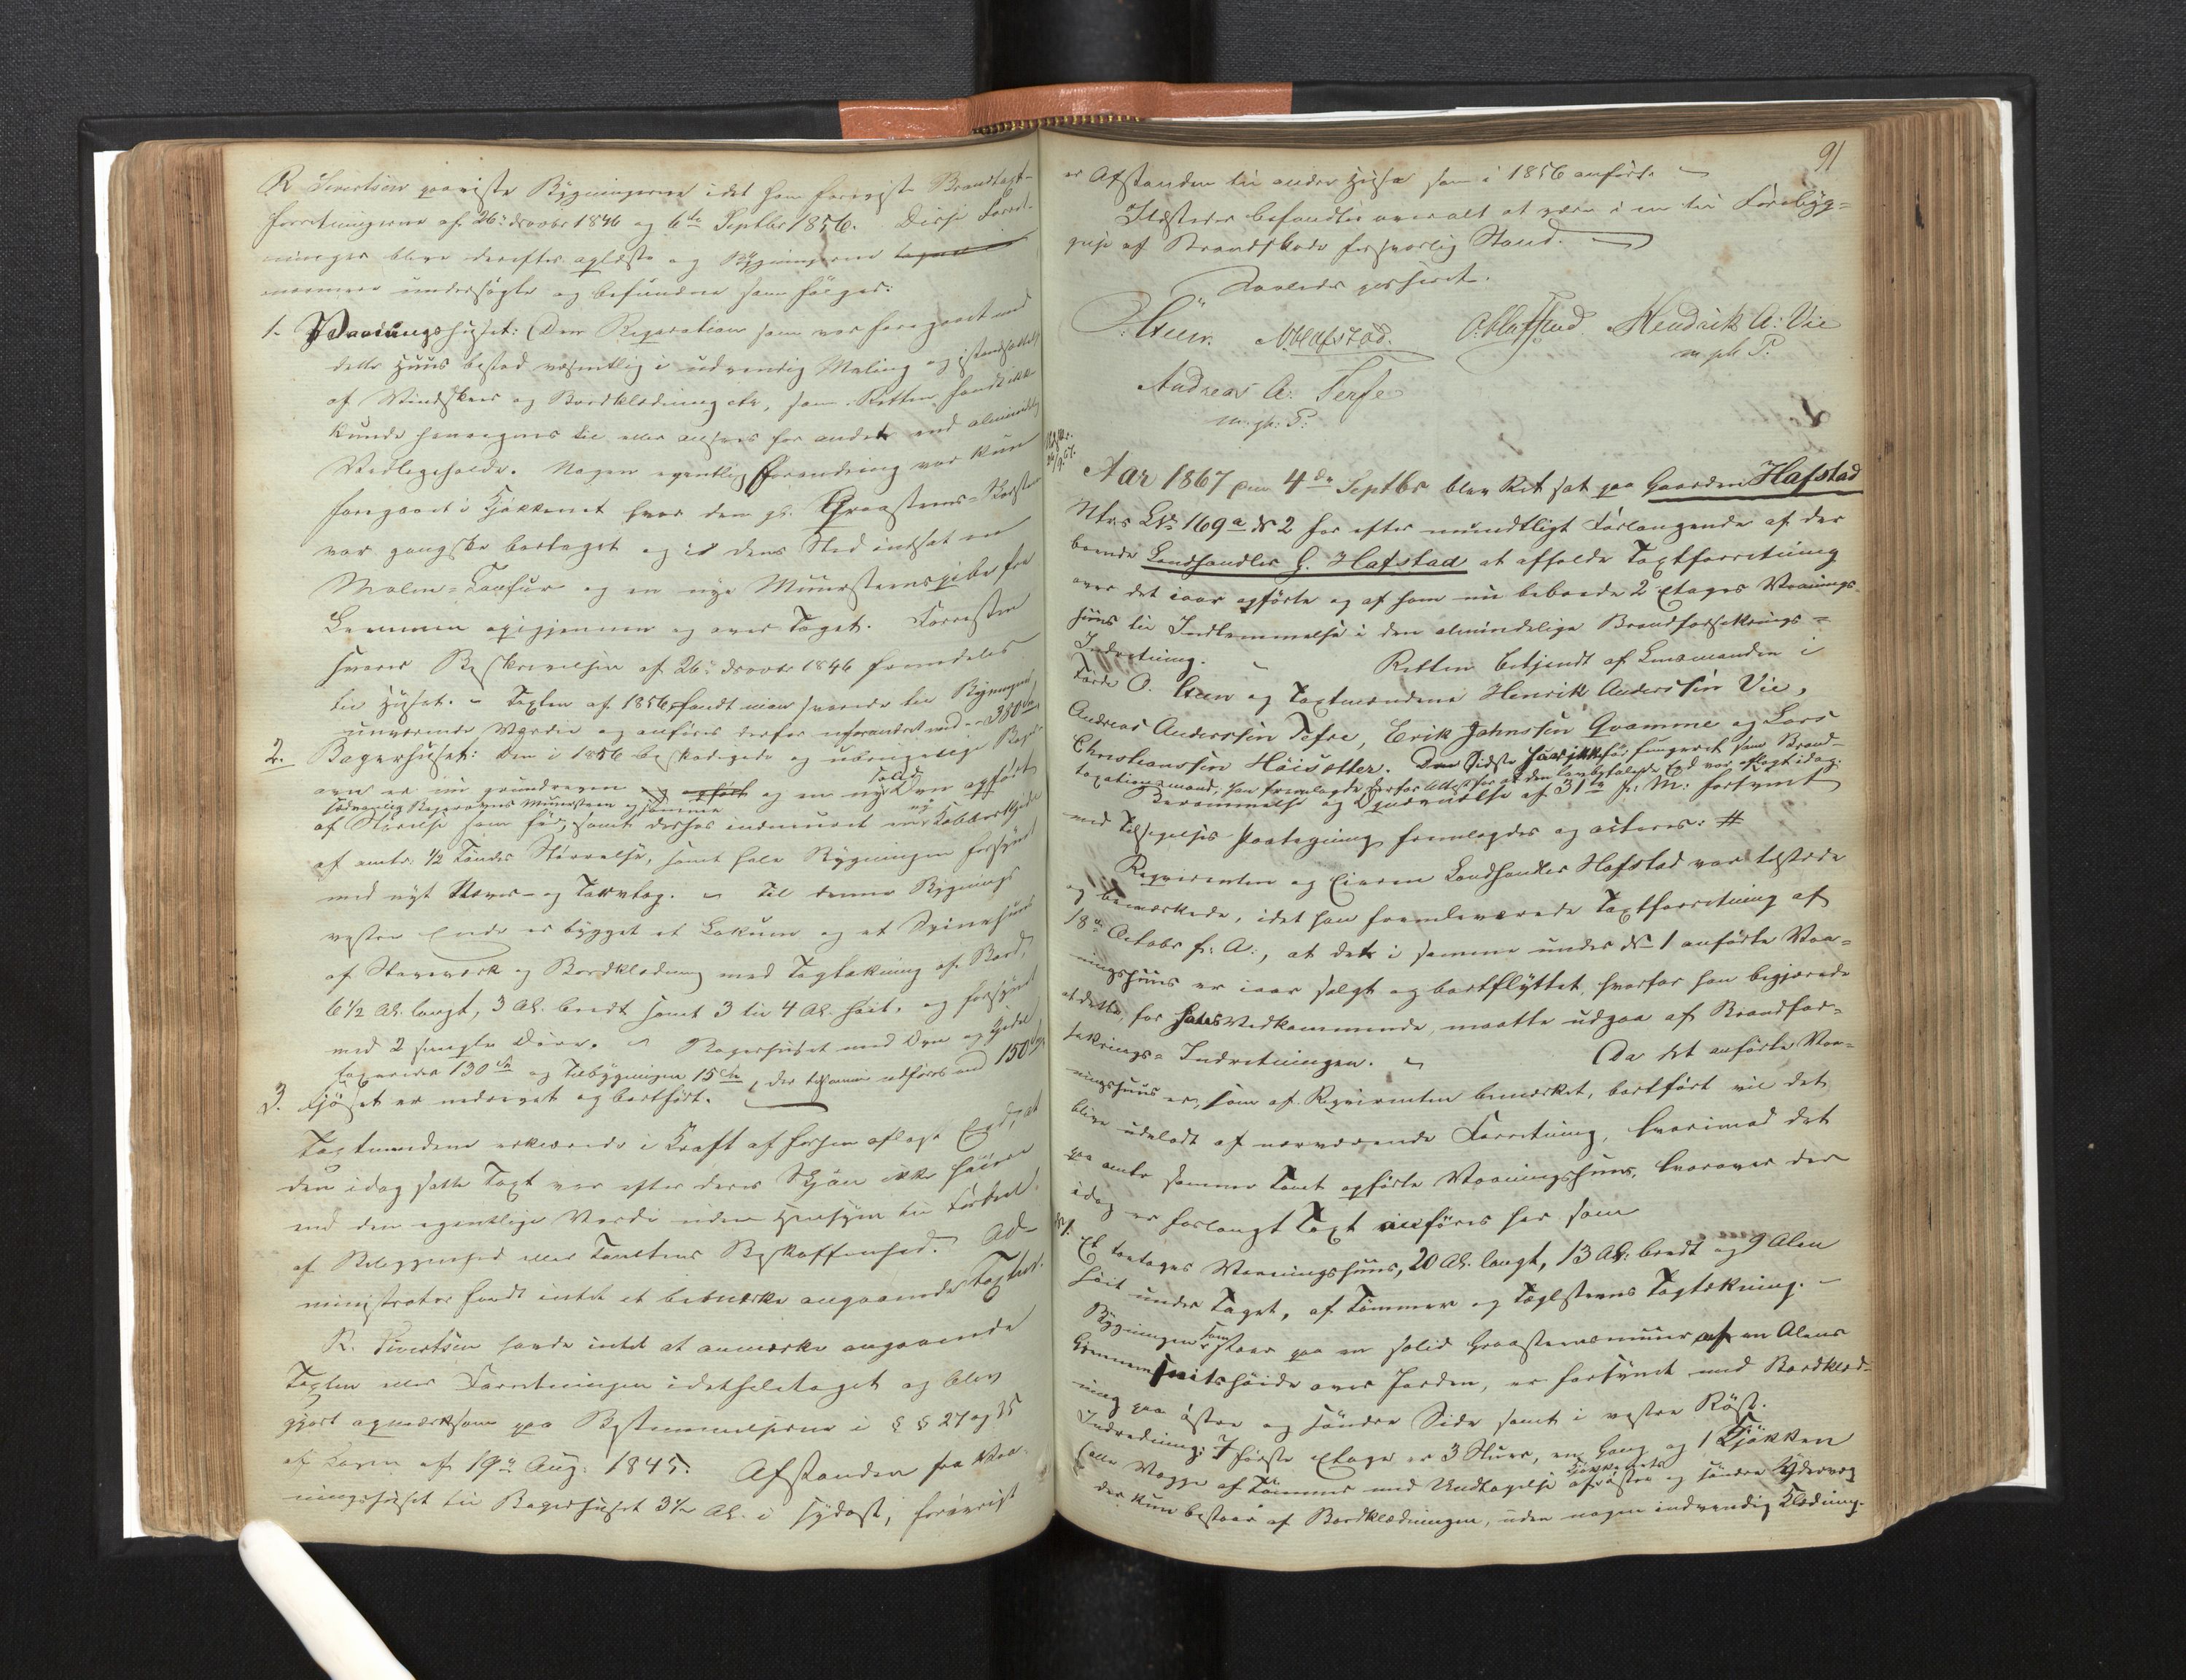 R Sivertsen paaviste Bygningerne idet han foreviste Brandtaxt-
forretningerne af 26de Novbr 1846 og 6te Septbr 1856. Disse Forret-
ninger blev derefter oplæste og Bygningerne
nærmere undersøgte og befundne som følger:
1. Vaaningshuset: Den Reparation som var foregaaet med
dette Huus bestod væsentlig i udvendig Maling og istandsættelse
af Vindskeer og Bordklædning etc, som Retten fandt ikke
kunde henregnes til eller ansees for andet end almindelig
Vedligeholde. Nogen egentlig Forandring var kun
foregaaet i Kjøkkenet hvor den gl. Graasteens-Skorsten
var ganske borttaget og i dens Sted indsat en
Malm-Komfur og en nye Muursteenspibe fra
Lemmen opigjennem og over Taget. Forresten
svarer Beskrivelsen af 26de Novbr 1846 fremdeles
til Huset. - Taxten af 1856 fandt man svarende til Bygningens
nuværende Værdie og anføres derfor uforandret med - 380 Spd
2. Bagerhuset: Den i 1856 beskadigede og ubrugelige Bager-
ovn er nu grundreven og opført og en ny solid Ovn opført
sædvanlig Bagerovns Muursteen og samme
af Størrelse som før, samt derhos indmuret en ny Kobberkjedel
af omtr. 1/2 Tøndes Størrelse, samt hele Bygningen forsynet
med nyt Næver- og Torvtag. - Til denne Bygnings
vestre Ende er bygget et Lokum og et Sviinehuus
af Stavværk og Bordklædning med Tagtækning af Bord,
6 1/2 Al. langt, 3 Al. bredt samt 3 til 4 Al. høit, og forsynet
med 2 simple Døre. - Bagerhuset med Ovn og Kjedel
taxeredes 130 Spd og Tilbygningen 15 Spd, der tilsammen udføres med 150 Spd
3. Fjøset er nedrevet og bortført.
Taxtmændene erklærede i Kraft af forhen aflagt Eed, at
den idag satte Taxt var efter deres Skjøn ikke høiere
end den egentlige Værdi uden Hensyn til Fordeel
af Beliggenhed eller Tomtens Beskaffenhed. Ad-
ministrator fandt intet at bemærke angaaende Taxten.
R. Sivertsen havde intet at anmærke angaaende
Taxten eller Forretningen idetheletaget og blev
gjort opmærksom paa Bestemmelserne i § § 27 og 35
af Loven af 19de Aug: 1845. Afstanden fra Vaa-
ningshuset til Bagerhuset 3 1/2 Al. i sydost, forøvrigt
91
er Afstanden til andre Huse som i 1856 anført. -
Ildsteder befandtes overalt at være i en til Forebyg-
gelse af Brandskade forsvarlig Stand.
Saaledes passeret.
O. Steen. N Hafstad. O. Hafstad Hendrik A: Vie
m. ph. P.
Andreas A: Tefre
m. ph. P.
Aar 1867 den 4de Septbr blev Ret sat paa Gaarden Hafstad
Mtrs LNo 169a No 2 for efter mundtligt Forlangende af der
boende Landhandler G. Hafstad at afholde Taxtforretning
over det iaar opførte og af ham nu beboede 2 Etages Vaanings-
huus til Indlemmelse i den almindelige Brandforsikrings-
Indretning. - Retten betjendt af Lensmanden i
Førde O. Steen og Taxtmændene Henrik Anderssen Vie,
Andreas Anderssen Tefre, Erik Johnssen Qvamme og Lars
Christianssen Høisætter. Den Sidste har ikke før fungeret som Brand-
taxationsmand, han fremlagde derfor Attest for at den lovbefalede Eed var aflagt idag.
Berammelse og Opnævnelse af 31te f: M: forsynet
med Tilsigelses Paategning fremlagdes og acteres: #
Reqvirenten og Eieren Landhandler Hafstad var tilstede
og bemærkede, idet han fremleverede Taxtforretning af
18de Octobr f: A:, at det i samme under No 1 anførte Vaa-
ningshuus er iaar solgt og bortflyttet, hvorfor han begjærede
at dette, for hans Vedkommende, maatte udgaa af Brandfor-
sikrings-Indretningen. - Da det anførte Vaa-
ningshuus er, som af Reqvirenten bemærket, bortført vil det
blive udeladt af nærværende Forretning, hvorimod det
paa omtr samme Tomt opførte Vaaningshuus, hvorover der
idag er forlangt Taxt anføres her som
No 1. Et toetages Vaaningshuus, 20 Al. langt, 13 Al: bredt og 9 Alen
høit under Taget, af Tømmer og Teglsteens Tagtækning. -
Bygningen som staar paa en solid Graasteensmuur af en Alens
Gjennemsnitshøide over Jorden, er forsynet med Bordklæd-
ning paa østre og søndre Side samt i vestre Røst.
Indredning: I første Etage er 3 Stuer, en Gang og 1 Kjøkken
(alle Vægge af Tømmer med Undtagelse af Kjøkkenets østre og søndre Ydervæg
der kun bestaar af Bordklædningen, uden nogen indvendig Klædning.